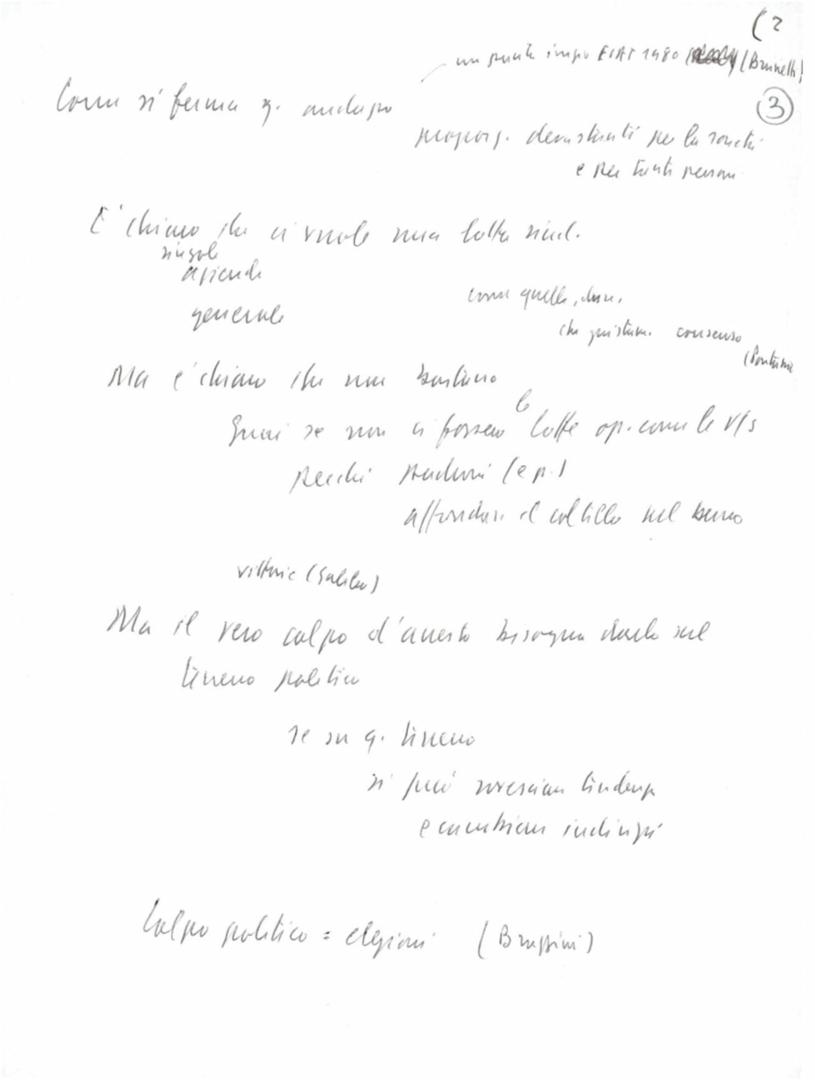 (2
un punto FIAT 1980 (Brunelli)
Come si ferma q. andazzo
③
devastanti per la società
e per tanti
E' chiaro che ci vuole una lotta sind.
singole
aziende
generale
come quelle
che consenso
Ma è chiaro che non bastano
Guai se non ci fossero le lotte op. come le v/s
perché (e p.)
affondare il coltello nel burro
vittorie (Galileo)
Ma il vero colpo d'arresto bisogna darlo sul
terreno politico
se su q. terreno
si può rovesciare tendenza
e cambiare indirizzi
Colpo politico = elezioni